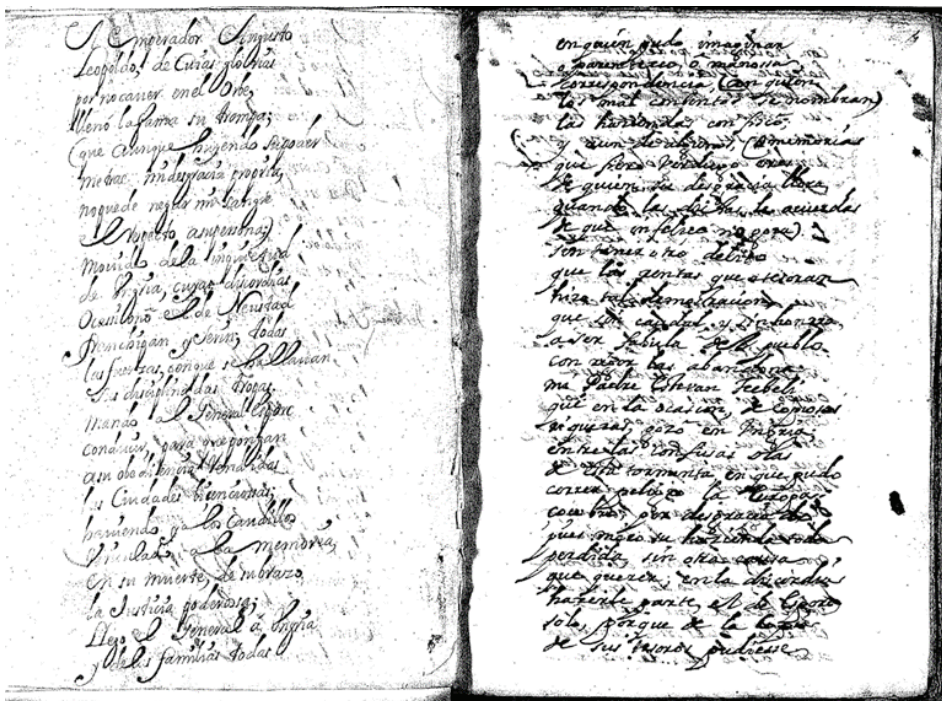 El Emperador Augusto
Leopoldo, de Cuias glorias
por no cauer en el Orbe,
llenó la fama su trompa;
(que aunque huiendo su poder
me trae mi desgracia propria,
no puede negar mi sangre
el respecto a su persona;)
mouido de la inquietud
de Vngria, cuias discordias
Ocassionó el de
y Serin, todas
las fuerzas, conque se hallauan
sus disciplinadas tropas.
Mando al General
conducir, para que pongan
a su obediencia rendidas
las Ciudades licenciosas;
hauiendo ya los Caudillos
a la memoria,
en su muerte, de su brazo
la Justicia poderosa;
Llego el General à Vngria
y de las familias todas
en quien pudo imaginar
o parentezco, ò mañossa
correspondencia, (con quien
los mal contentos se nombran)
las haziendas confiscó.
y aun de algunos, (à memorias
que fiero Verdugo eres
de quien su desgracia llora
quando las dichas la acuerdas
de que infelice no goza)
sin tener otro delito
que las rentas que atesoran
hizo tal demostracion,
que sin caudal, y sin honra,
a ser fabula del pueblo
con rigor las abandona.
mi Padre Estevan Tekeli
que en la ocasion, de copiosas
riquezas, gozó en Vngria,
entre las confusas olas
de esta tormenta, en que pudo
correr peligro la Europa
por desgracia
pues miró su hazienda toda
perdida, sin otra causa
que querer, en la discordia
hazerle parte, el de
solo, porque de la
de sus tesoros pudiesse